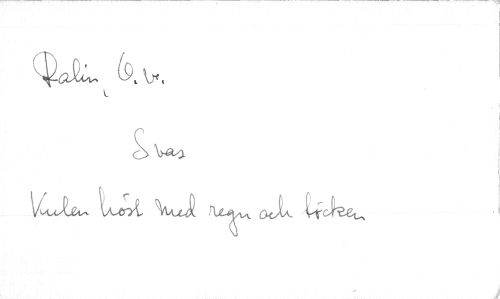 Ralin, O. v.
Svar
Kulen höst med regn och töcken